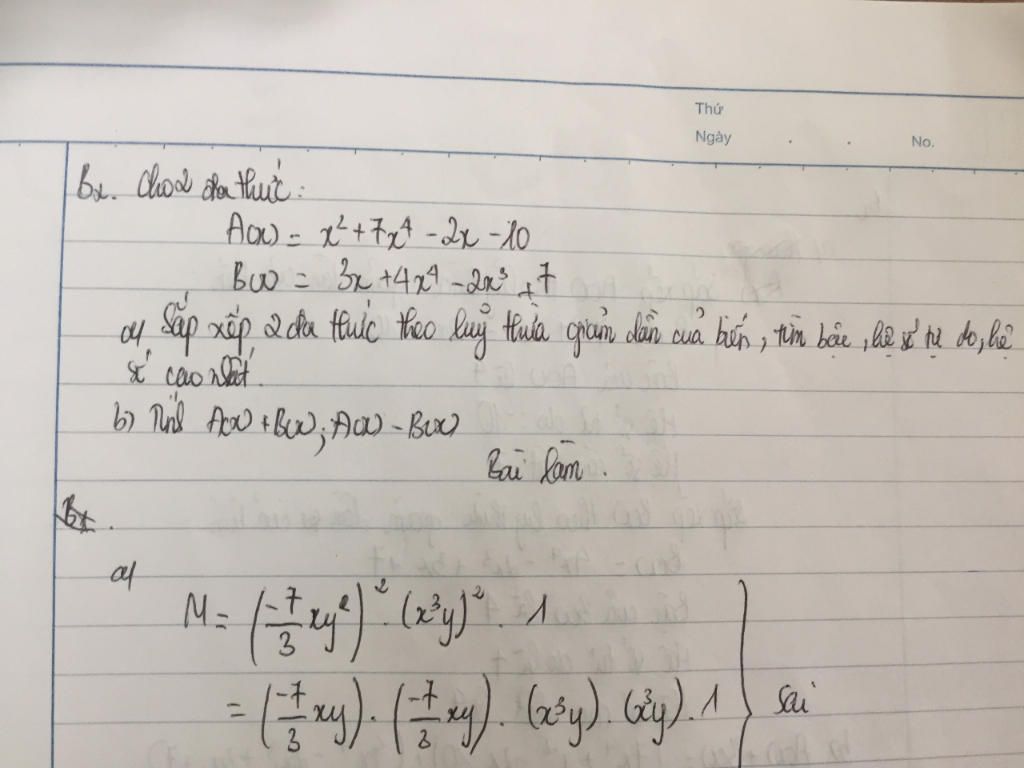 Thứ
Ngày . . No.
Bx. Cho 2 đa thức:
A(x) = x² + 7x⁴ - 2x - 10
B(x) = 3x + 4x⁴ - 2x³ + 7
a) Sắp xếp 2 đa thức theo luỹ thừa giảm dần của biến, tìm bậc, hệ số tự do, hệ
số cao nhất.
b) Tính A(x) + B(x); A(x) - B(x)
Bài làm.
Bx.
a)
M = (-7/3 xy²)² . (x³y)² . 1
= (-7/3 xy) . (-7/3 xy) . (x³y) . (x³y) . 1 } Sai